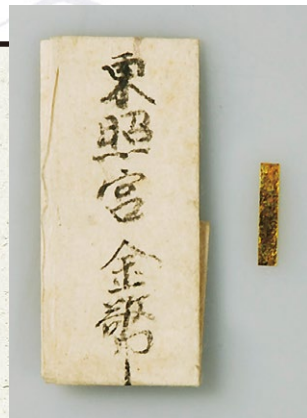 東照宮金幣